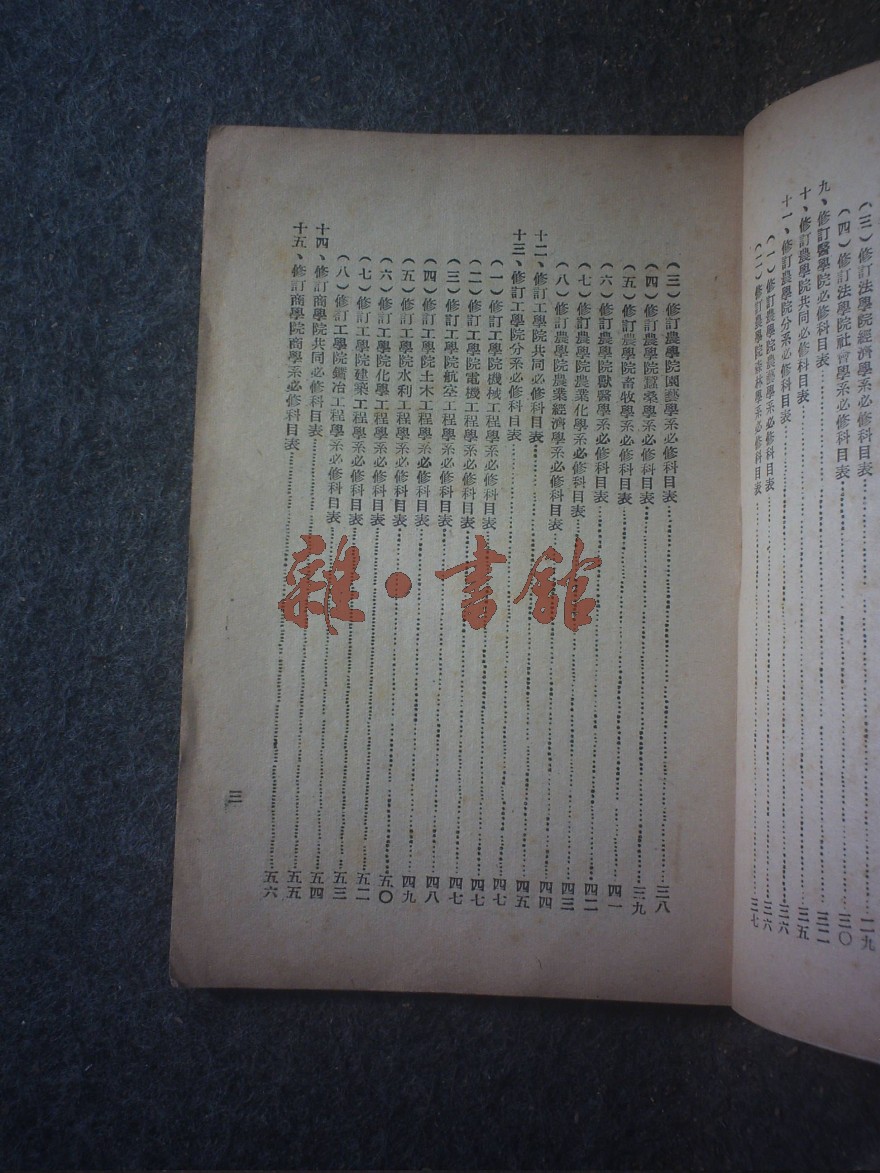 (三)修訂法學院經濟學系必修科目表……二九
(四)修訂法學院社會學系必修科目表……三〇
九、修訂醫學院必修科目表……三二
十、修訂農學院共同必修科目表……三五
十一、修訂農學院分系必修科目表……三六
(一)修訂農學院農藝學系必修科目表……三六
(二)修訂農學院森林學系必修科目表……三七
(三)修訂農學院園藝學系必修科目表……三八
(四)修訂農學院蠶桑學系必修科目表……三九
(五)修訂農學院畜牧學系必修科目表……四一
(六)修訂農學院獸醫學系必修科目表……四二
(七)修訂農學院農業化學系必修科目表……四三
(八)修訂農學院農業經濟學系必修科目表……四四
十二、修訂工學院共同必修科目表……四五
十三、修訂工學院分系必修科目表……四七
(一)修訂工學院機械工程學系必修科目表……四七
(二)修訂工學院電機工程學系必修科目表……四七
(三)修訂工學院航空工程學系必修科目表……四八
(四)修訂工學院土木工程學系必修科目表……四九
(五)修訂工學院水利工程學系必修科目表……五〇
(六)修訂工學院化學工程學系必修科目表……五二
(七)修訂工學院建築工程學系必修科目表……五三
(八)修訂工學院鑛冶工程學系必修科目表……五四
十四、修訂商學院共同必修科目表……五五
十五、修訂商學院商學系必修科目表……五六
三
雜·書館